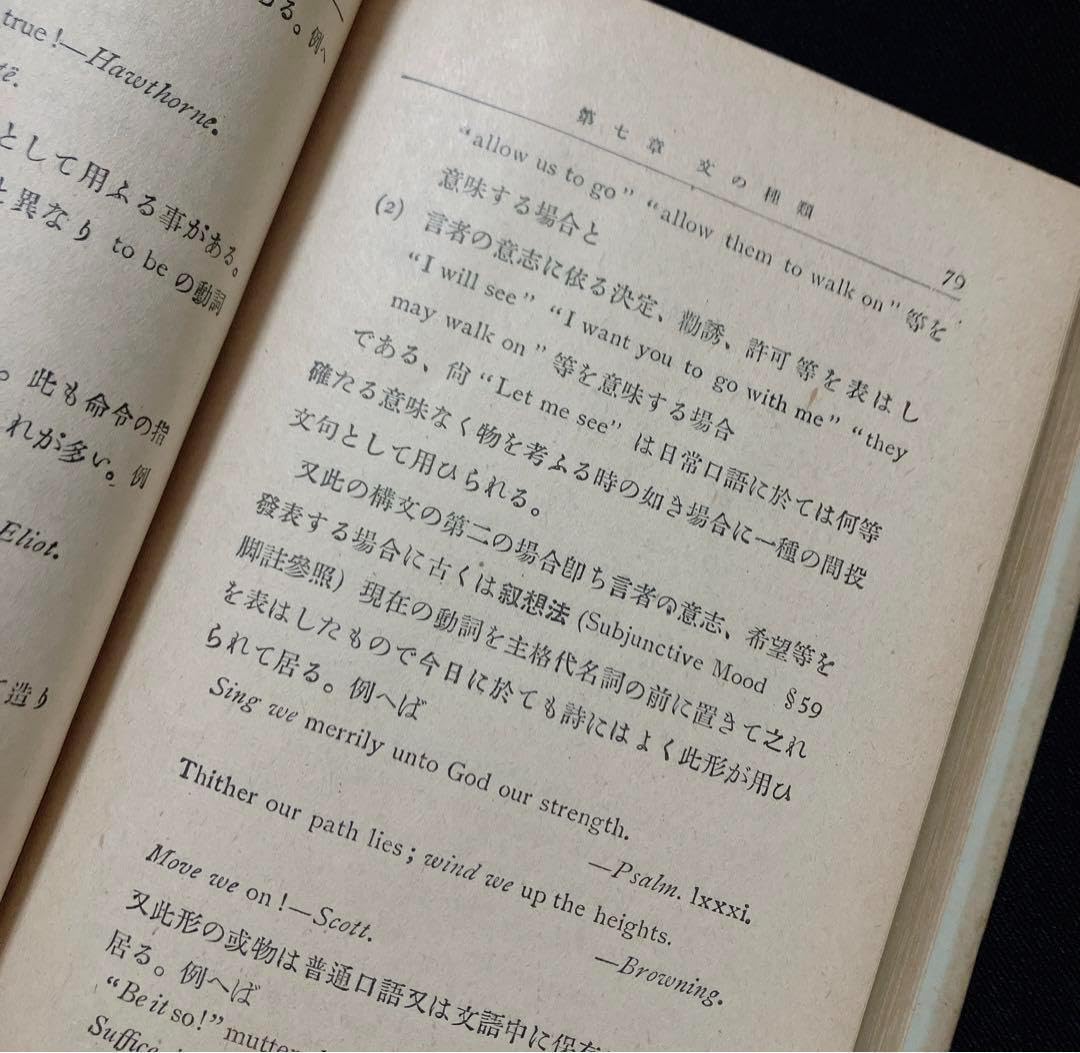 true!—Hawthorne.
të.
として用ふる事がある。
と異なり to be の動詞
。此も命令の指
れが多い。例
Eliot.
て造り
ある。例へ
第七章 文の種類
79
“allow us to go” “allow them to walk on” 等を
意味する場合と
(2) 言者の意志に依る決定、勸誘、許可等を表はし
“I will see” “I want you to go with me” “they
may walk on” 等を意味する場合
である、尙 “Let me see” は日常口語に於ては何等
確たる意味なく物を考ふる時の如き場合に一種の間投
文句として用ひられる。
又此の構文の第二の場合卽ち言者の意志、希望等を
發表する場合に古くは叙想法 (Subjunctive Mood §59
脚註參照) 現在の動詞を主格代名詞の前に置きて之れ
を表はしたもので今日に於ても詩にはよく此形が用ひ
られて居る。例へば
Sing we merrily unto God our strength.
—Psalm. lxxxi.
Thither our path lies; wind we up the heights.
—Browning.
Move we on!—Scott.
又此形の或物は普通口語又は文語中に保存
居る。例へば
“Be it so!” mutter
Suffice